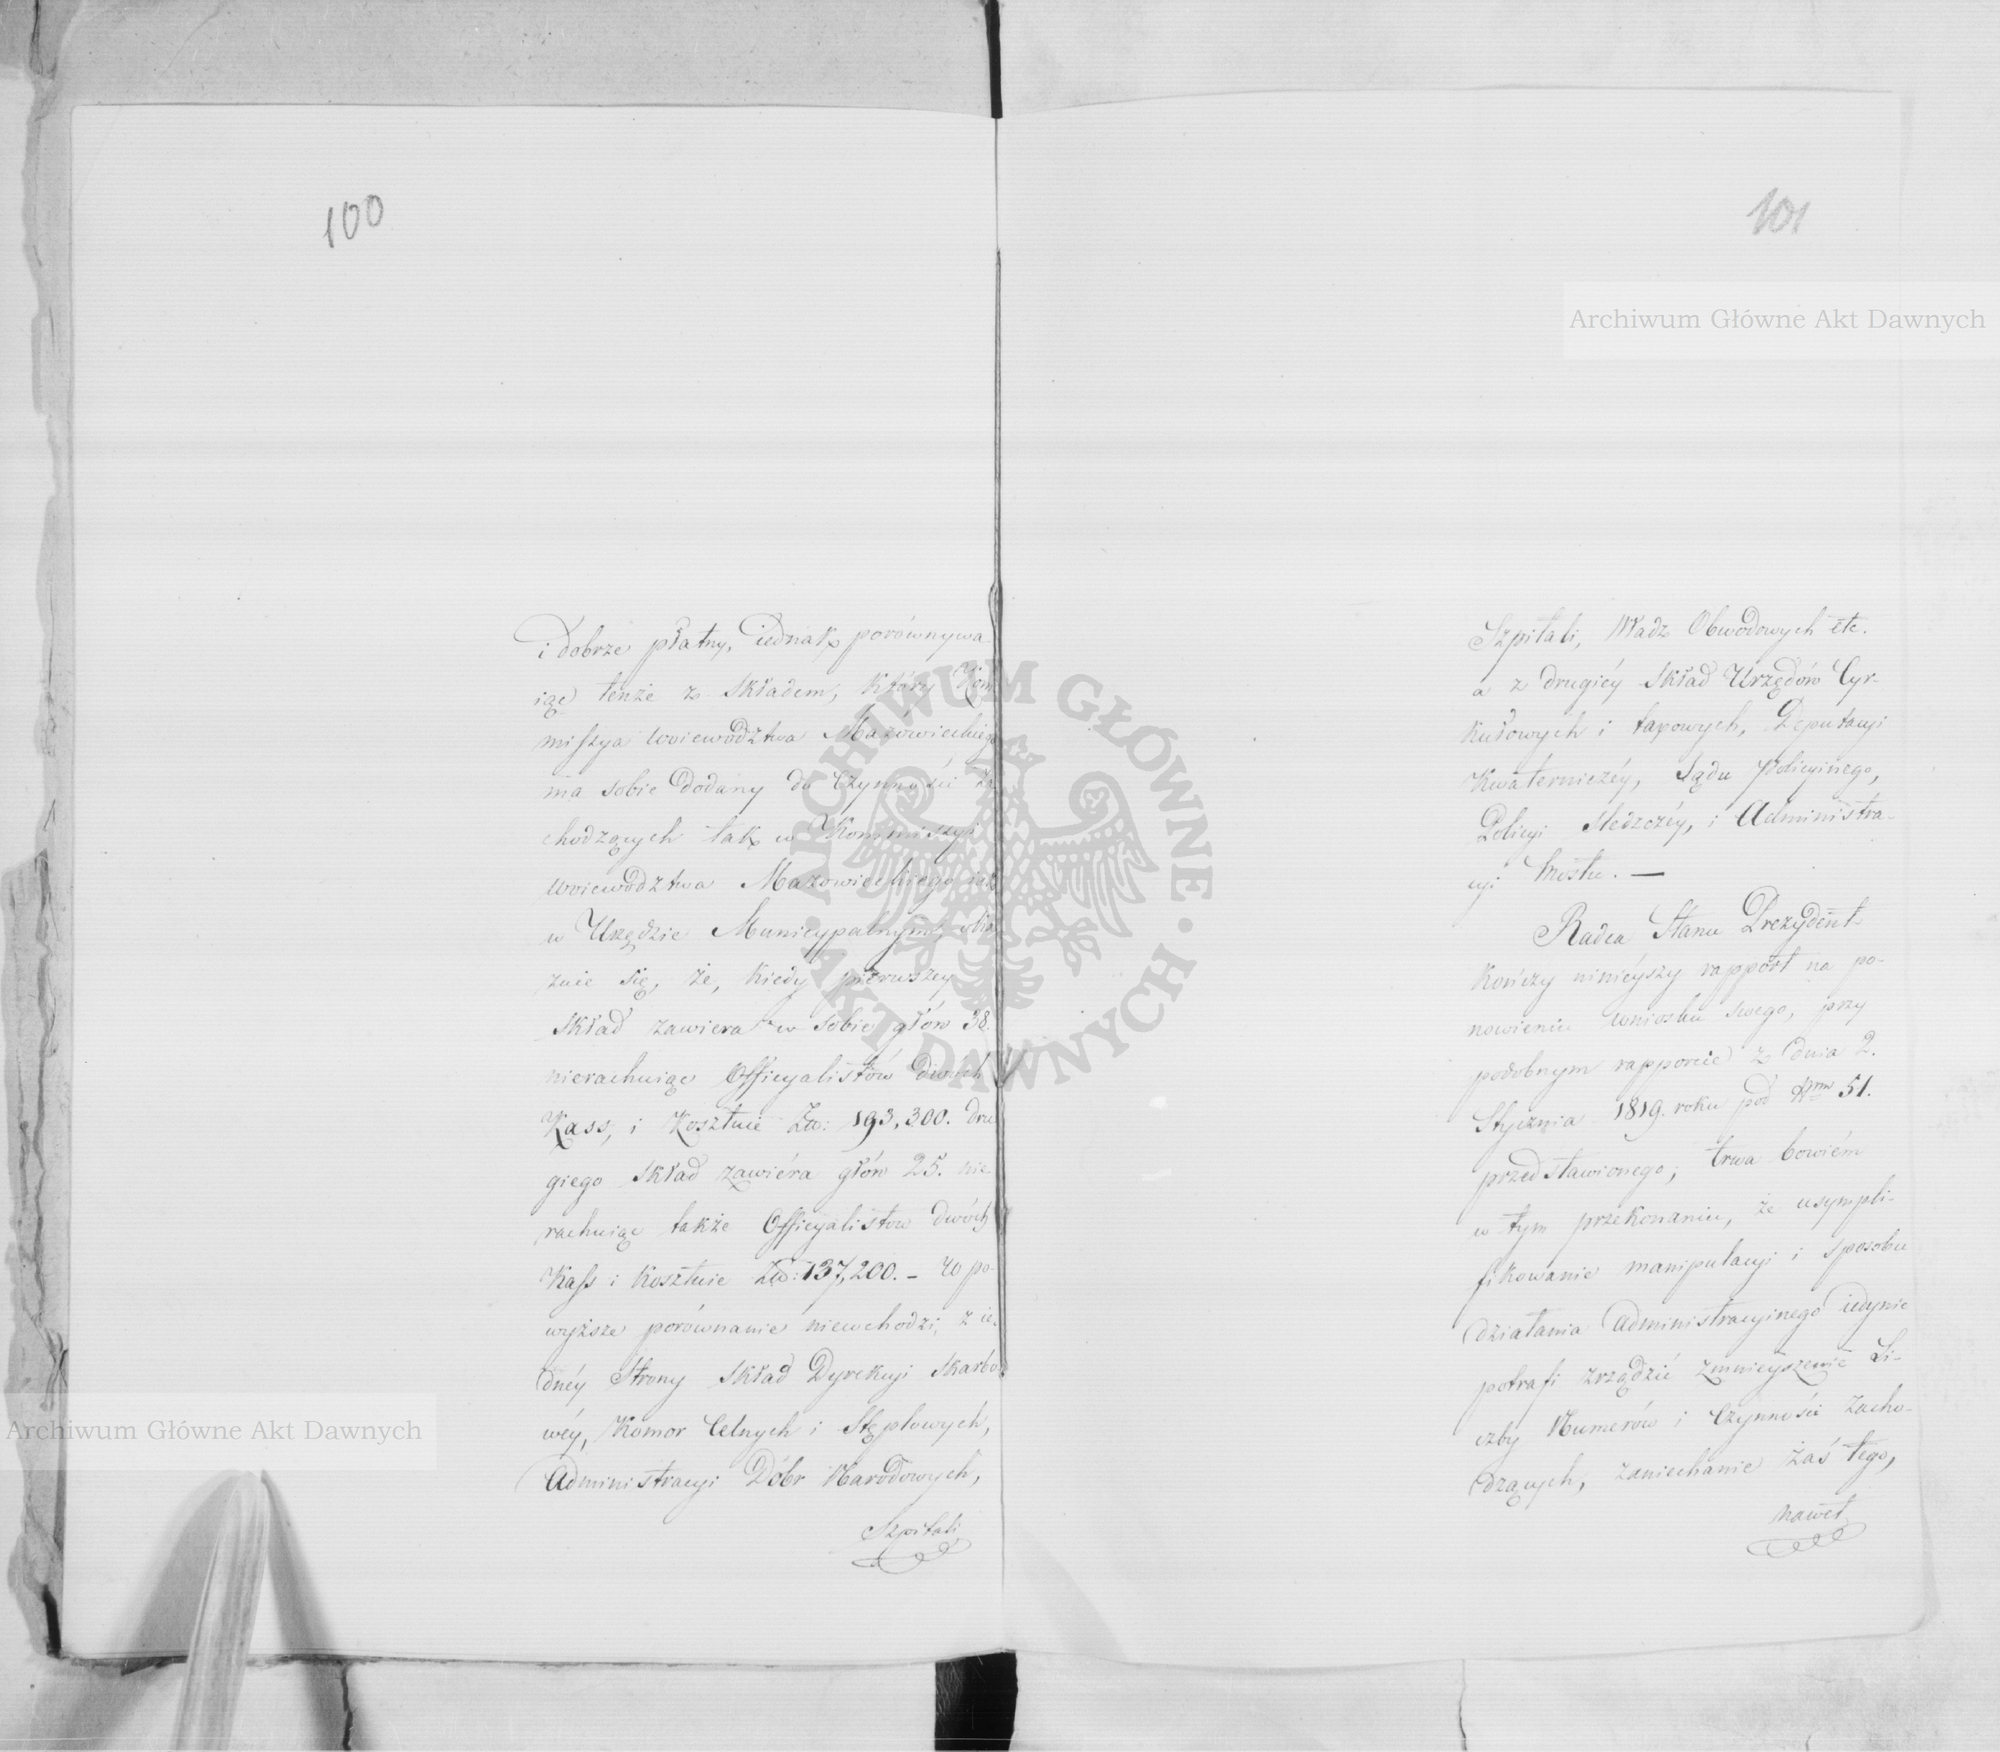 100
i dobrze płatny, iednak porównywa
iąc tenże z Składem, który Kom
missya Woiewództwa Mazówieckiego
ma sobie dodany do Czynności za
chodzących tak w Kommissyi
Woiewództwa Mazowieckiego iak
w Urzędzie Municypalnym, oka
zuie się, że, kiedy pierwszey
Skład zawiera w sobie głów 38.
nierachuiąc Officyalistów dwóch
Kass, i kosztuie Zł: 193,300. dru
giego Skład zawiéra głów 25. nie
rachuiąc także Officyalistow dwóch
Kass i kosztuie Zł: 137,200. – W po-
wyższe porównanie niewchodzi, z ie-
dnéy Strony Skład Dyrekcyi Skarbo
wéy, Komor Celnych i Stęplowych,
Administracyi Dóbr Narodowych,
Szpitali
101
Szpitali, Władz Obwodowych etc.
a z drugiéy Skład Urzędów Cyr-
kułowych i taxowych, Deputacyi
Kwaterniczéy, Sądu Policyinego,
Policyi Śledczéy, i Administra-
cyi Mostu. —
Radca Stanu Prezydent
kończy ninieyszy rapport na po-
nowieniu wniosku swego, przy
podobnym rapporcie z dnia 2.
Stycznia 1819. roku pod Nrm 51.
przedstawionego; trwa bowiém
w tym przekonaniu, że usympli-
fikowanie manipulacyi i sposobu
działania Administracyinego iedynie
potrafi zrządzić zmnieyszenie Li-
czby Numerów i Czynności zacho-
dzących, zaniechanie zaś tego,
nawet
Archiwum Główne Akt Dawnych
Archiwum Główne Akt Dawnych
ARCHIWUM GŁÓWNE · AKT DAWNYCH ·